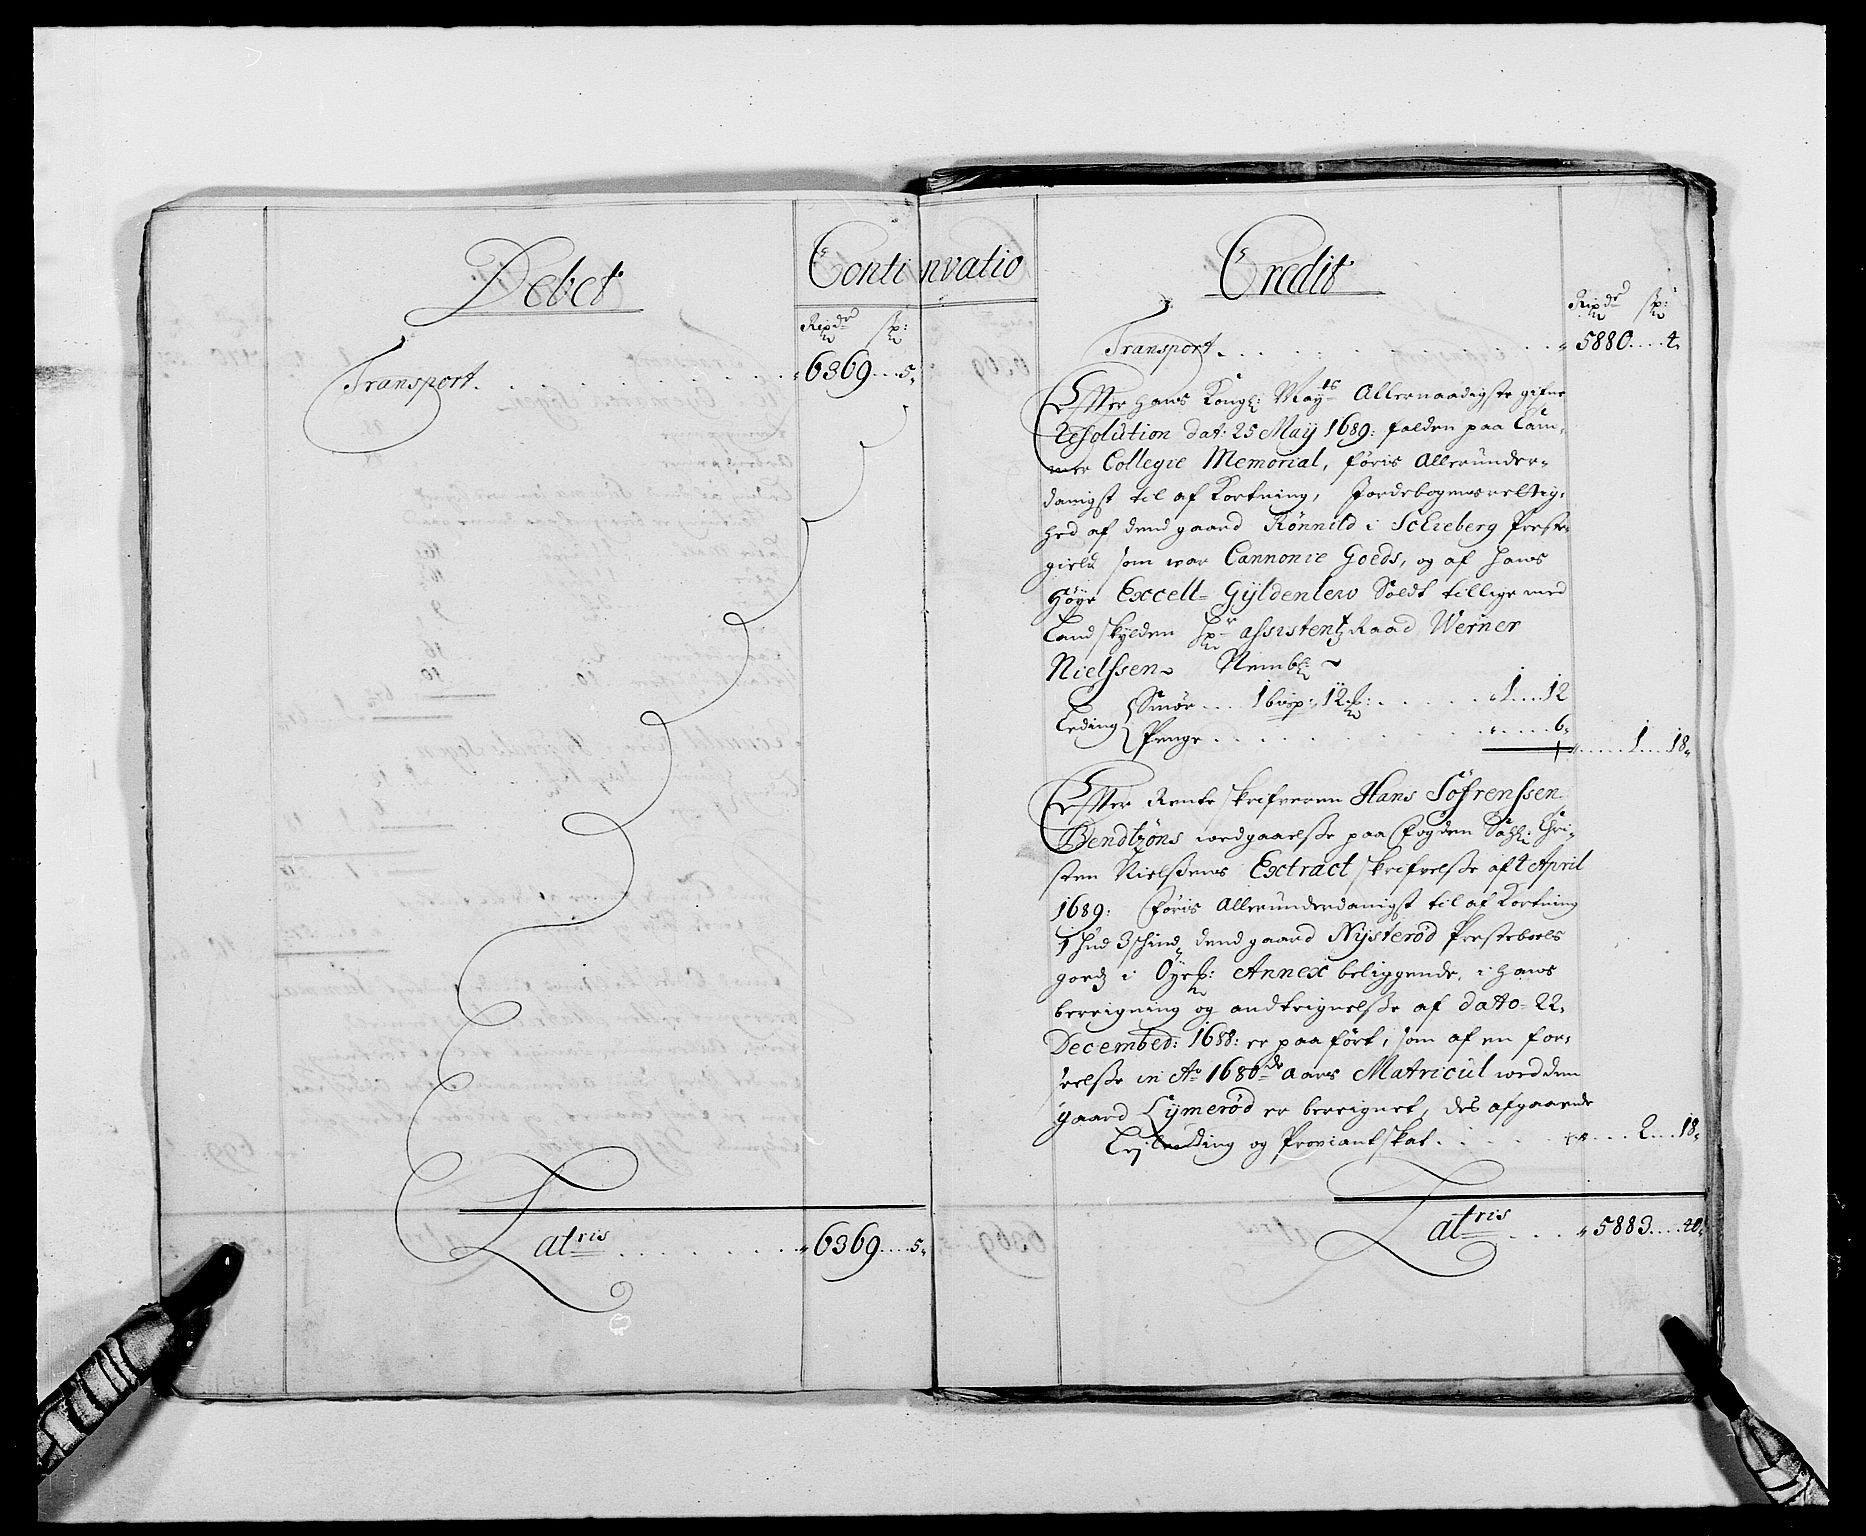 Debet
Continvatio
Ripdr sp:
Transport . . . . . . . . . . 6369 . . . 5
Latris . . . . . . . 6369 . . . . 5
Credit
Ripdr sp:
Transport . . . . . . . . . . 5880 . . . . 4
Effter hans Kongl: Mayts Allernaadigste gifne
Resolution dat: 25 Maij 1689: falden paa Cam-
mer Collegie Memorial, føris Allerunder-
danigst til af Kortning, Jordebogens rettig-
hed af dend gaard Rönnild i Schieberg Preste-
gield som war Cannonie Goeds, og af hans
Høye Excell= Gÿldenlew Soldt tillige med
Landskylden hr assistentz Raad Werner
Nielssen Nembl:
Leding { Smør . . . . 1 bisp: 12 . . . . . . 1 . . . 12
Penge . . . . . . . . . . . . 6
1 . . . 18
Effter Rente skrifveren Hans Söfrenssen
Bendtzöns wedgaaelsse paa fogden Sahl: Chri-
sten Nielssens Extract skrifvelsse af 4 April
1689: føris Allerunderdanigst til af Kortning
1 hud 3 schind dend gaard Nÿsterød Prestebols
goedz i Öyes: Annex beliggende, i hans
bereigning og andteignelsse af dato 22
Decembed: 1688: er paa ført, som af en for-
eelsse in Ao 1680 de aars Matricul wed den
gaard Lymerød er bereignet, des afgaaende
Leding og Proviantskat . . . . . . 2 . . . 18
Latris . . . 5883 . . . 40